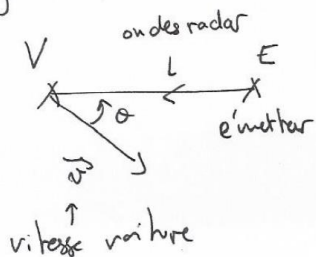 ondes radar
V
L
E
θ
émetteur
v⃗
vitesse voiture